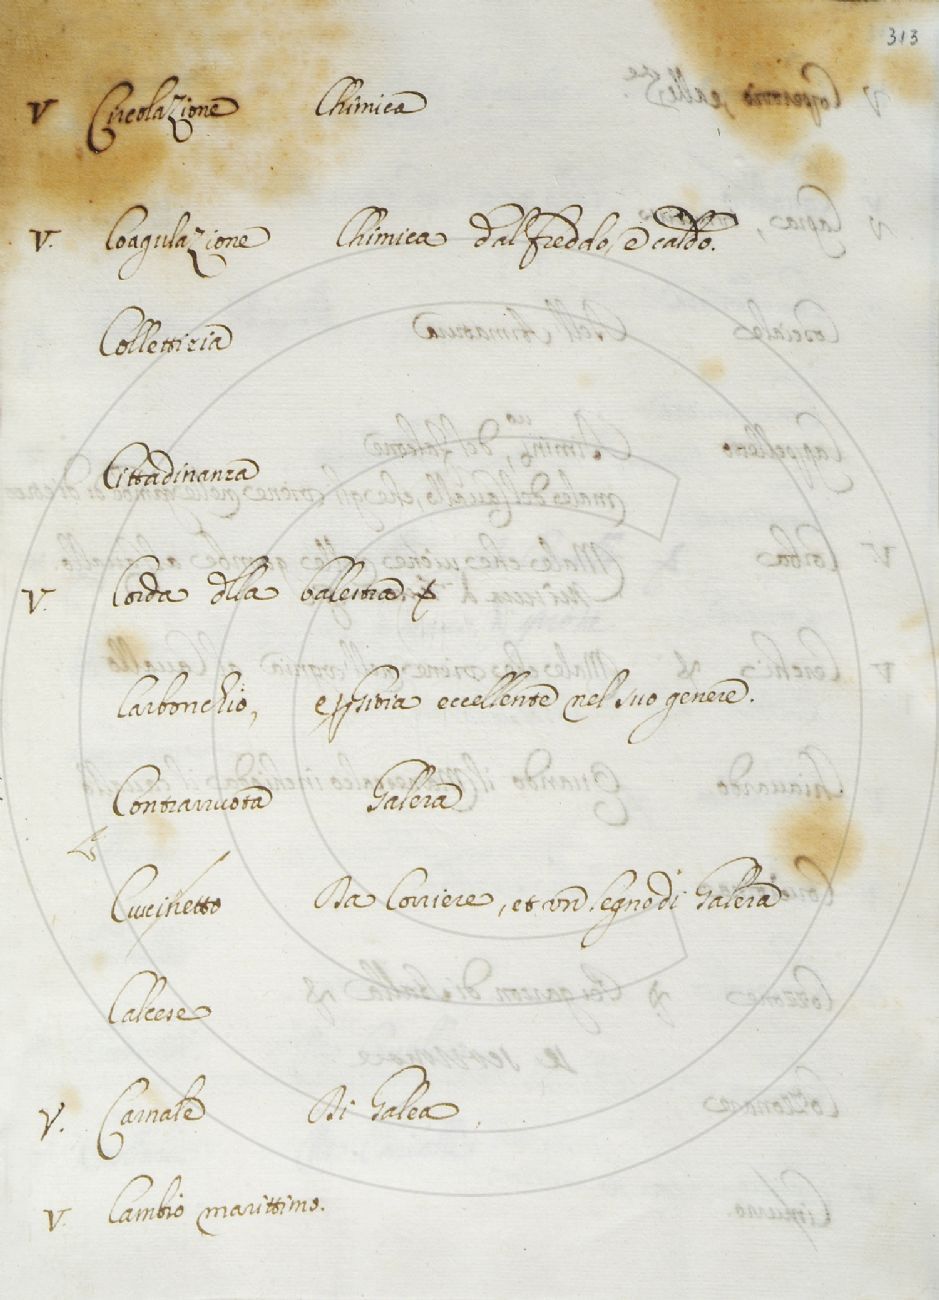 313
V Circolazione Chimica
V. Coagulazione Chimica dal freddo, e caldo.
Collettizia
Cittadinanza
V. Corda dlla balestra
Carbonchio, eccellente nel suo genere.
Contrarruota Galera
Cuscinetto Da Corriere, et un Legno di Galera
Calcese
V. Carnale Di Galea
V. Cambio marittimo.